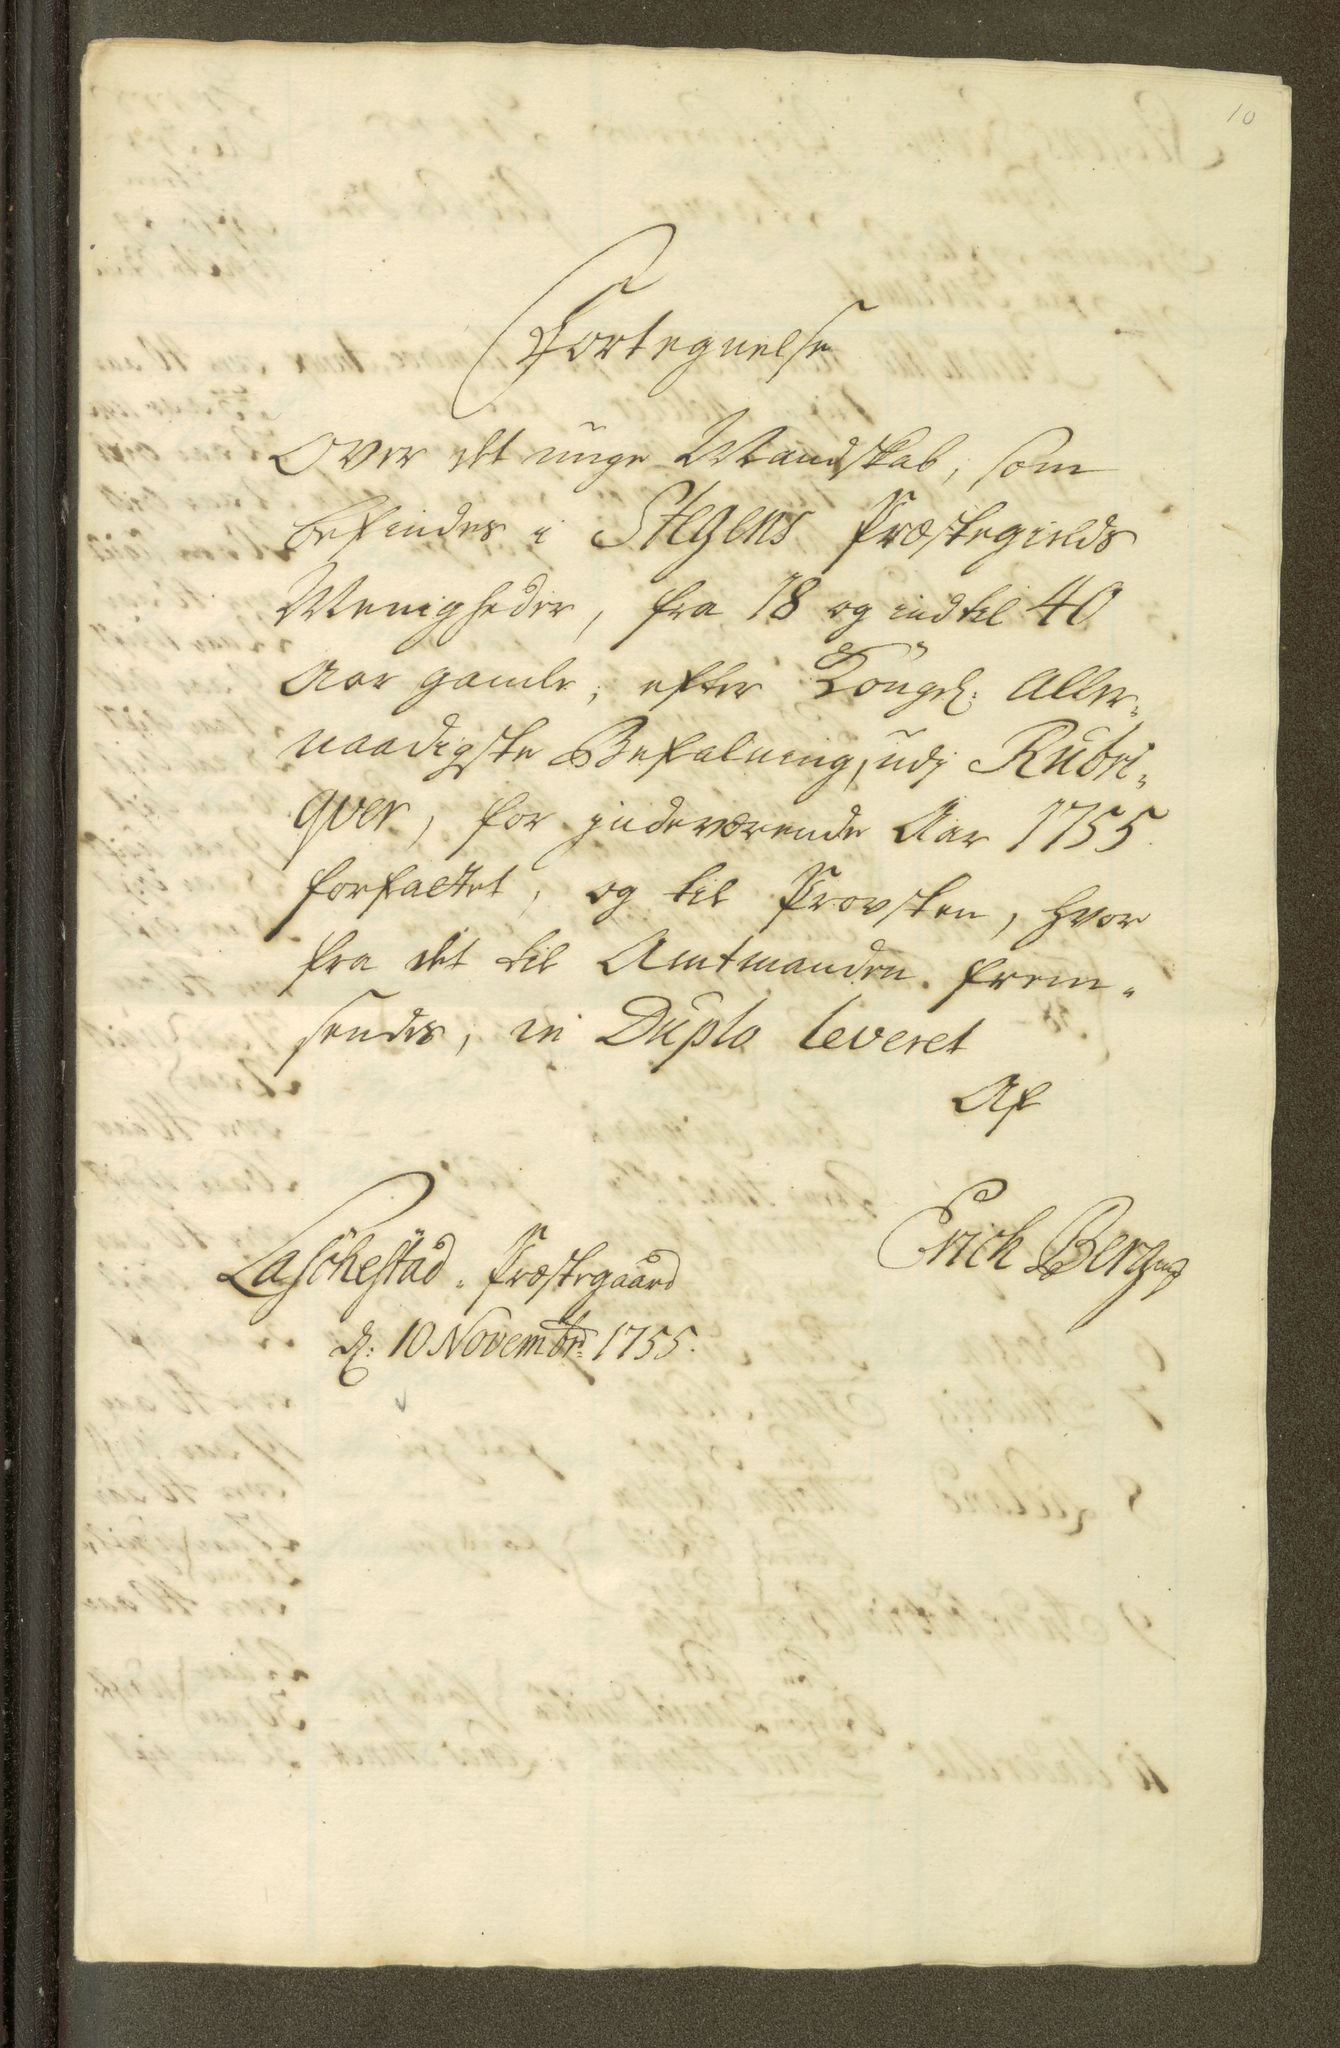 10
Fortegnelse
Over det unge Mandskab, som
befindes i Stegens Præstegields
Menigheder, fra 18 og indtil 40
Aar gamle, efter Kongel: Aller-
naadigste Befalning, udj Rubri-
qver, for indeværende Aar 1755.
forfattet, og til Provsten, hvor
fra det til Amtmanden frem-
sendes, in Duplo leveret
Af
Erich Berg
Laschestad Præstegaard
d: 10 Novembr: 1755.